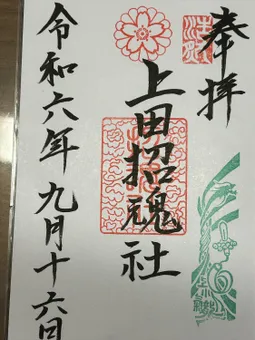 奉拝
上田招魂社
令和六年九月十六日